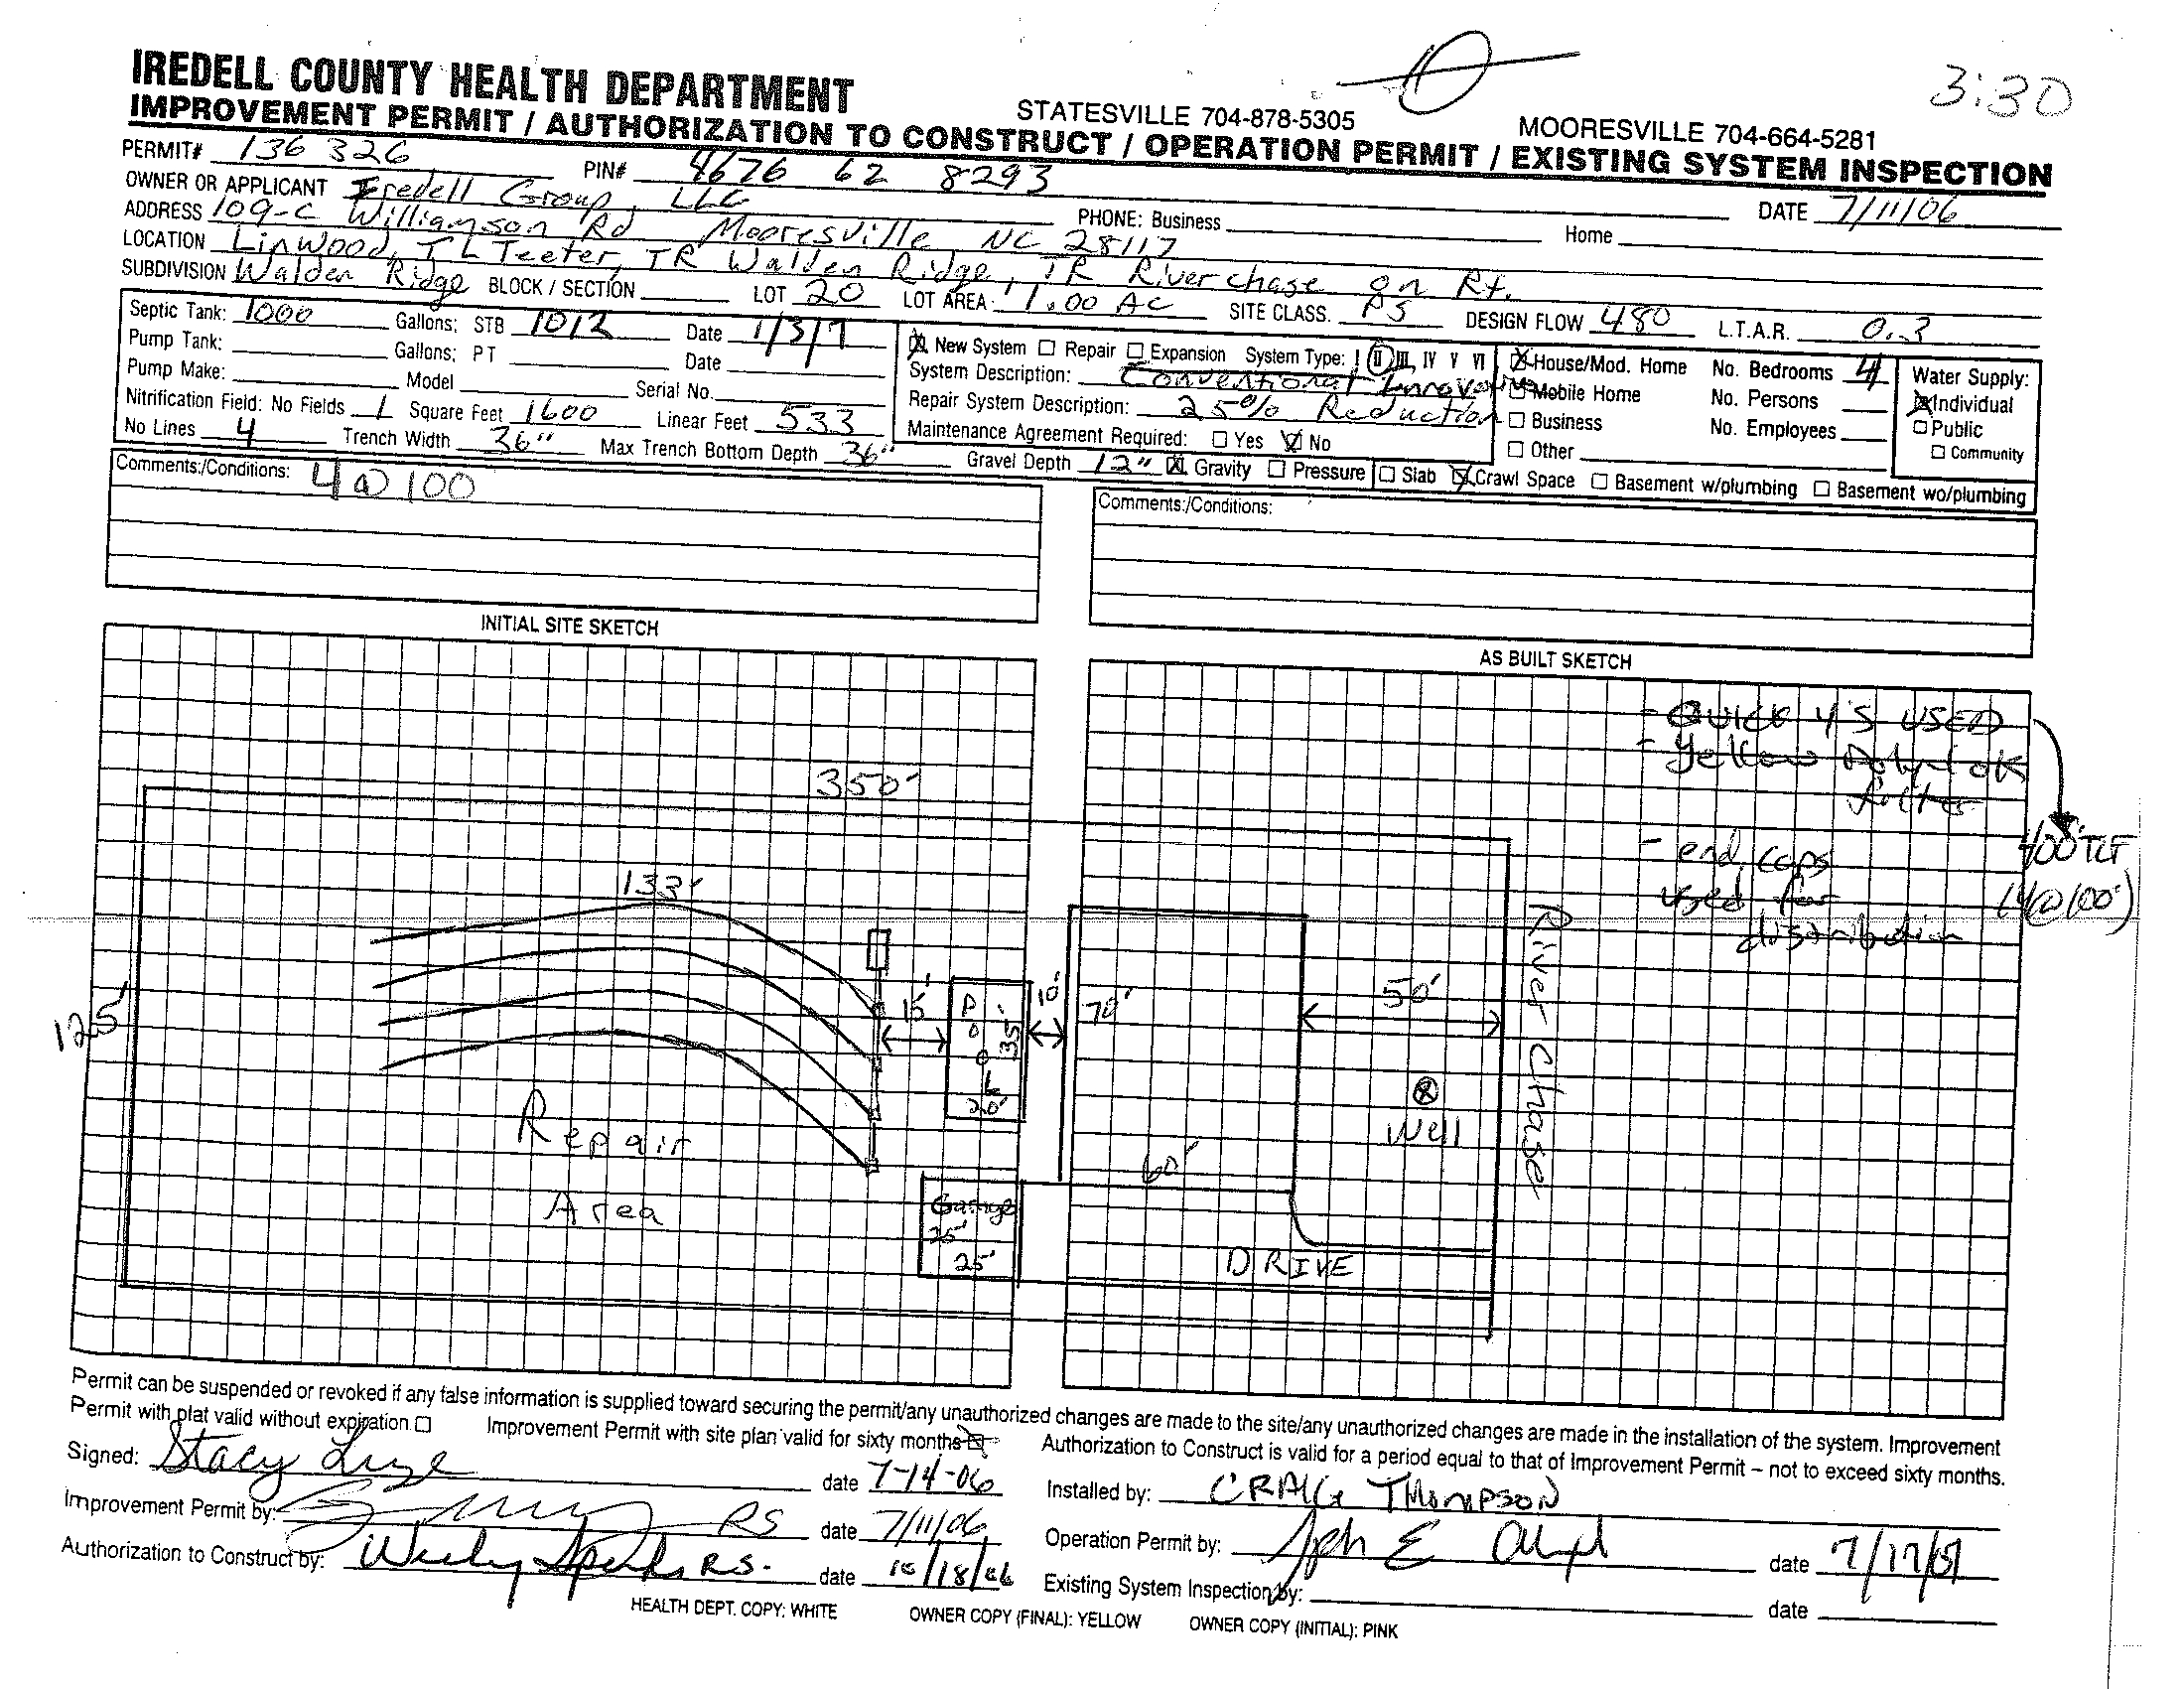 3:30
IREDELL COUNTY HEALTH DEPARTMENT
STATESVILLE 704-878-5305 MOORESVILLE 704-664-5281
IMPROVEMENT PERMIT / AUTHORIZATION TO CONSTRUCT / OPERATION PERMIT / EXISTING SYSTEM INSPECTION
PERMIT# 136 326 PIN# 4676 62 8293 DATE 7/11/06
OWNER OR APPLICANT Iredell Group, LLC PHONE: Business Home
ADDRESS 109-C Williamson Rd Mooresville, NC 28117
LOCATION Linwood, TL Teeter, TR Walden Ridge, TR Riverchase on Rt.
SUBDIVISION Walden Ridge BLOCK / SECTION LOT 20 LOT AREA: 1.00 AC SITE CLASS. PS DESIGN FLOW 480 L.T.A.R. 0.3
Septic Tank: 1000 Gallons; STB 1012 Date 1/3/7
Pump Tank: Gallons; PT Date
Pump Make: Model Serial No.
Nitrification Field: No Fields 1 Square Feet 1600 Linear Feet 533
No Lines 4 Trench Width 36" Max Trench Bottom Depth 36" Gravel Depth 12" ☒ Gravity ☐ Pressure
☒ New System ☐ Repair ☐ Expansion System Type: I II III, IV V VI
System Description: Conventional Innovative
Repair System Description: 25% Reduction
Maintenance Agreement Required: ☐ Yes ☒ No
☒ House/Mod. Home No. Bedrooms 4
☐ Mobile Home No. Persons
☐ Business No. Employees
☐ Other
Water Supply:
☒ Individual
☐ Public
☐ Community
☐ Slab ☒ Crawl Space ☐ Basement w/plumbing ☐ Basement wo/plumbing
Comments:/Conditions: 4 @ 100
Comments:/Conditions:
INITIAL SITE SKETCH
AS BUILT SKETCH
- QUICK 4'S USED
- Yellow Polylok
filter
- end caps
used for
distribution
400' TLT
(4@100')
350'
133'
125'
15'
POOL
35'
20'
10'
70'
50'
60'
Well
River Chase
Repair
Area
Garage
25'
25'
DRIVE
Permit can be suspended or revoked if any false information is supplied toward securing the permit/any unauthorized changes are made to the site/any unauthorized changes are made in the installation of the system. Improvement
Permit with plat valid without expiration ☐ Improvement Permit with site plan valid for sixty months ☒ Authorization to Construct is valid for a period equal to that of Improvement Permit – not to exceed sixty months.
Signed: Stacy date 7-14-06
Installed by: CRAIG THOMPSON
Improvement Permit by: RS date 7/11/06
Operation Permit by: date 7/17/07
Authorization to Construct by: R.S. date 10/18/06
Existing System Inspection by: date
HEALTH DEPT. COPY: WHITE OWNER COPY (FINAL): YELLOW OWNER COPY (INITIAL): PINK